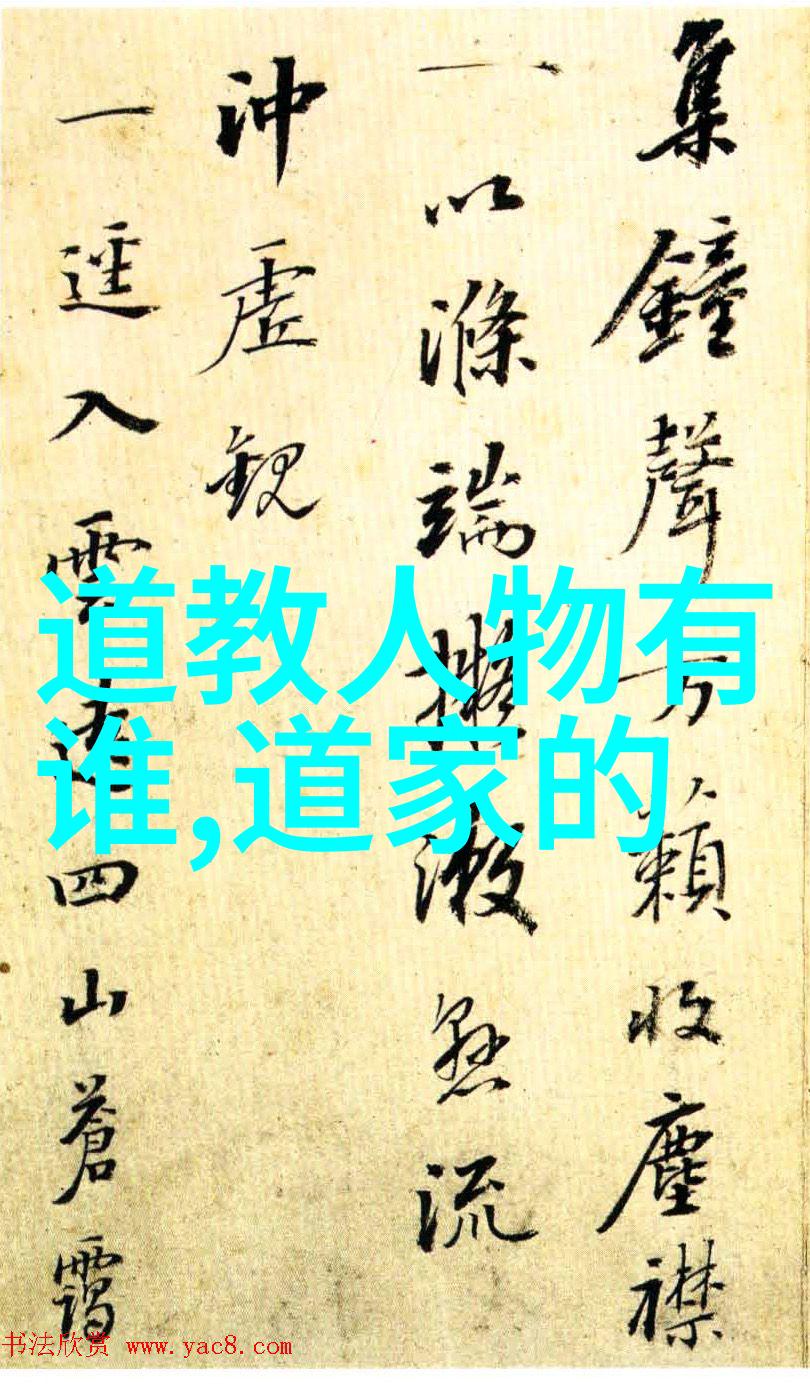 集鐘聲万籟收塵襟
一以滌端擬漱懸流
沖虛觀
一逕入雲四山蒼靄
道教人物有
谁,道家的
书法欣赏 www.yac8.com